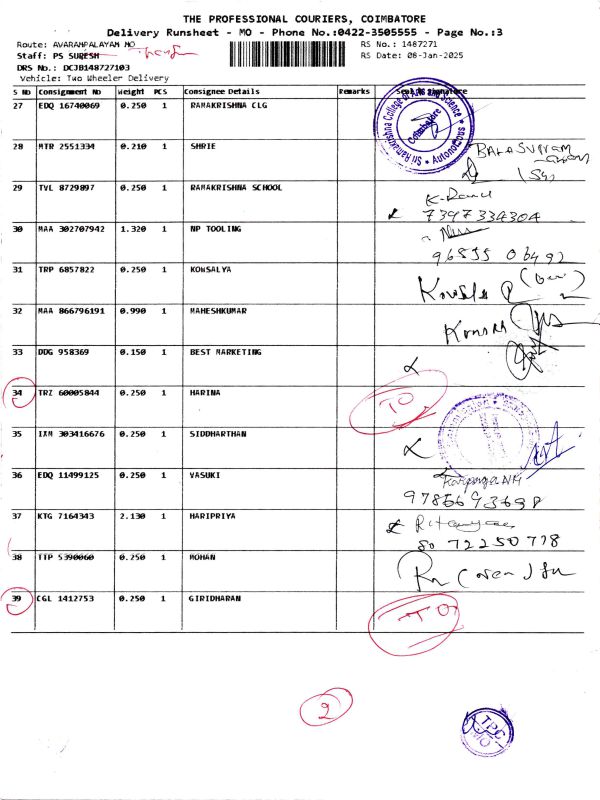 THE PROFESSIONAL COURIERS, COIMBATORE
Delivery Runsheet - MO - Phone No.:0422-3505555 - Page No.:3
Route: AVARAMPALAYAM MO
RS No.: 1487271
Staff: PS SURESH
RS Date: 08-Jan-2025
DRS No.: DCJB148727103
Vehicle: Two Wheeler Delivery
S No Consignment No Weight PCS Consignee Details Remarks Seal & Signature
27 EDQ 16740069 0.250 1 RAMAKRISHNA CLG
Sri Ramakrishna College of Arts and Science
Coimbatore
Autonomous
28 MTR 2551334 0.210 1 SHRIE
29 TVL 8729897 0.250 1 RAMAKRISHNA SCHOOL
7397334304
30 MAA 302707942 1.320 1 NP TOOLING
96555 06492
31 TRP 6857822 0.250 1 KOWSALYA
32 MAA 866796191 0.990 1 MAHESHKUMAR
33 DDG 958369 0.150 1 BEST MARKETING
34 TRZ 60005844 0.250 1 HARINA TO
35 IXM 303416676 0.250 1 SIDDHARTHAN
36 EDQ 11499125 0.250 1 VASUKI
9786693698
37 KTG 7164343 2.130 1 HARIPRIYA
72250778
38 TTP 5390060 0.250 1 MOHAN
39 CGL 1412753 0.250 1 GIRIDHARAN TO
2
TPC
MO